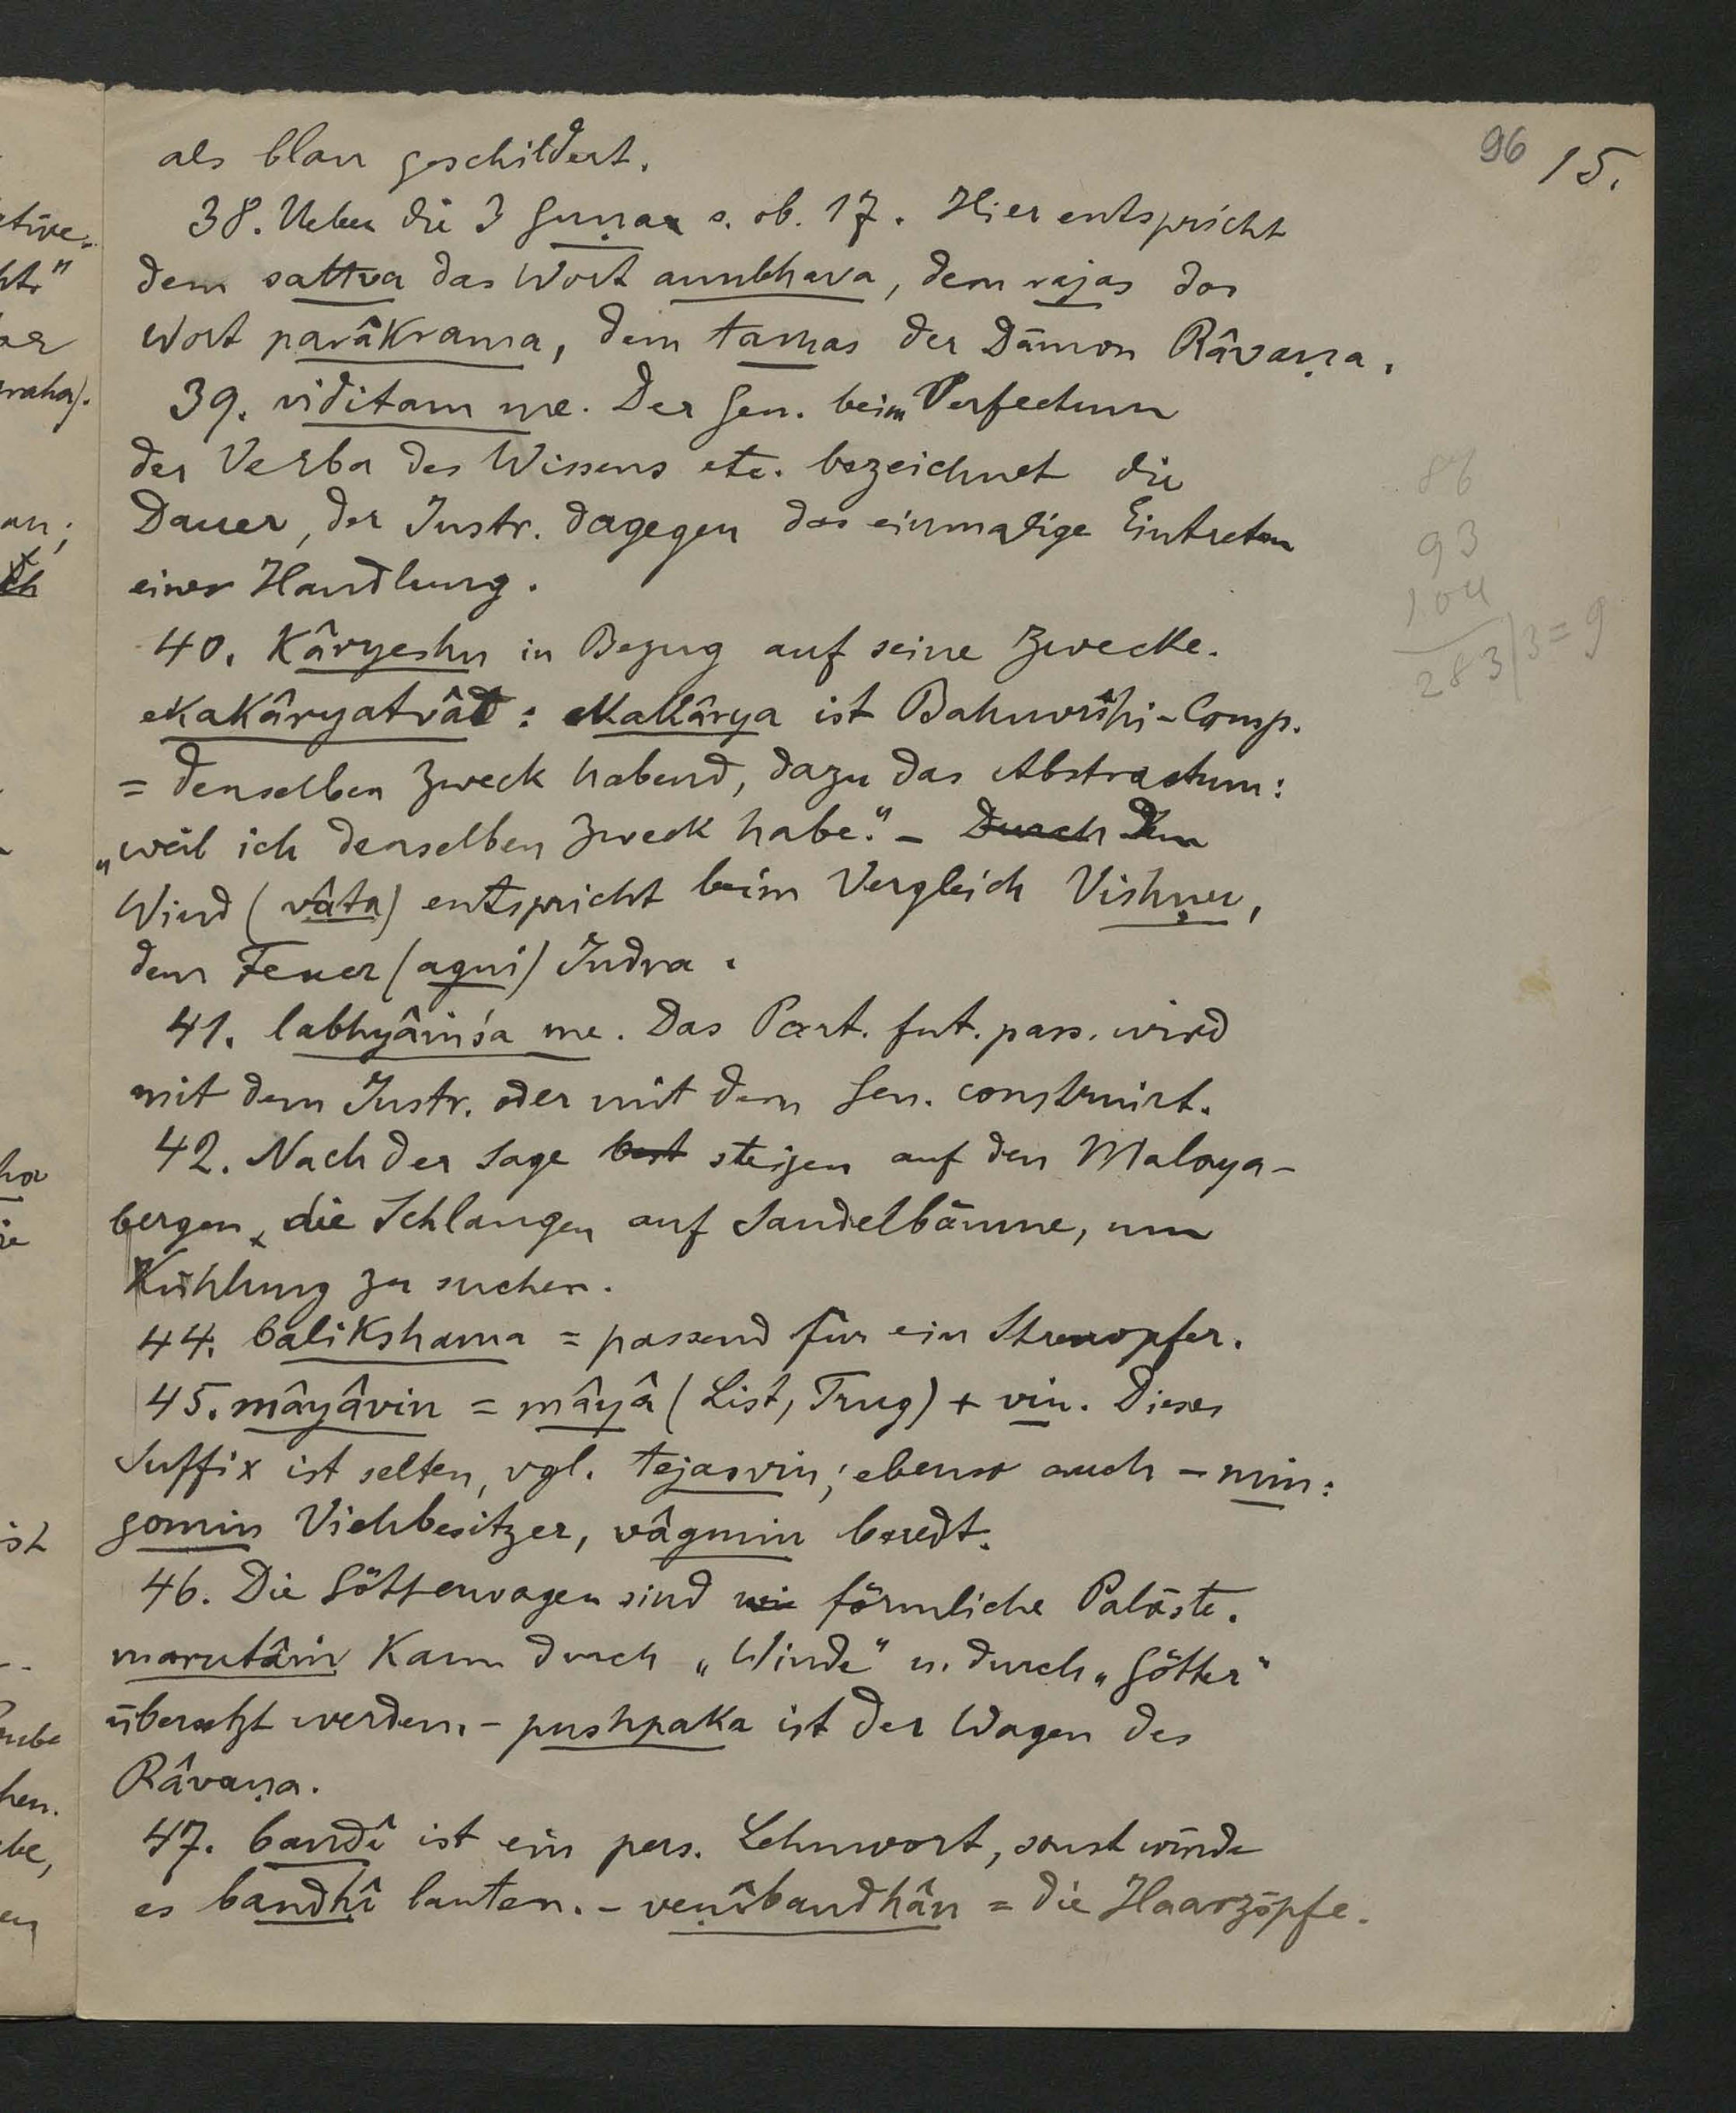 96 15.
als blau geschildert.
38. Ueber die 3 Guṇas s. ob. 17. Hier entspricht
dem sattva das Wort anubhava, dem rajas das
Wort parâkrama, dem tamas der Dämon Râvaṇa.
39. viditam me. Der Gen. beim Perfectum
der Verba des Wissens etc. bezeichnet die
Dauer, der Instr. dagegen das einmalige Eintreten
einer Handlung.
40. Kâryeshu in Bezug auf seine Zwecke.
ekakâryatvât: ekakârya ist Bahuvrîhi-Comp.
= denselben Zweck habend, dazu das Abstractum:
„weil ich denselben Zweck habe." – Durch Dem
Wind (vâta) entspricht beim Vergleich Vishṇu,
dem Feuer (agni) Indra.
41. labhyâṁśa me. Das Part. fut. pass. wird
mit dem Instr. oder mit dem Gen. construirt.
42. Nach der Sage steigen auf den Malaya-
bergen die Schlangen auf Sandelbäume, um
Kühlung zu suchen.
44. balikshama = passend für ein Streuopfer.
45. mâyâvin = mâyâ (List, Trug) + vin. Dieses
Suffix ist selten, vgl. tejasvin; ebenso auch -min:
gomin Viehbesitzer, vâgmin beredt.
46. Die Götterwagen sind wie förmliche Paläste.
marutâṁ kann durch „Winde" u. durch „Götter"
übersetzt werden. – pushpaka ist der Wagen des
Râvaṇa.
47. bandî ist ein pers. Lehnwort, sonst würde
es bandhî lauten. – veṇîbandhân = die Haarzöpfe.
86
93
104
283/3 = 9